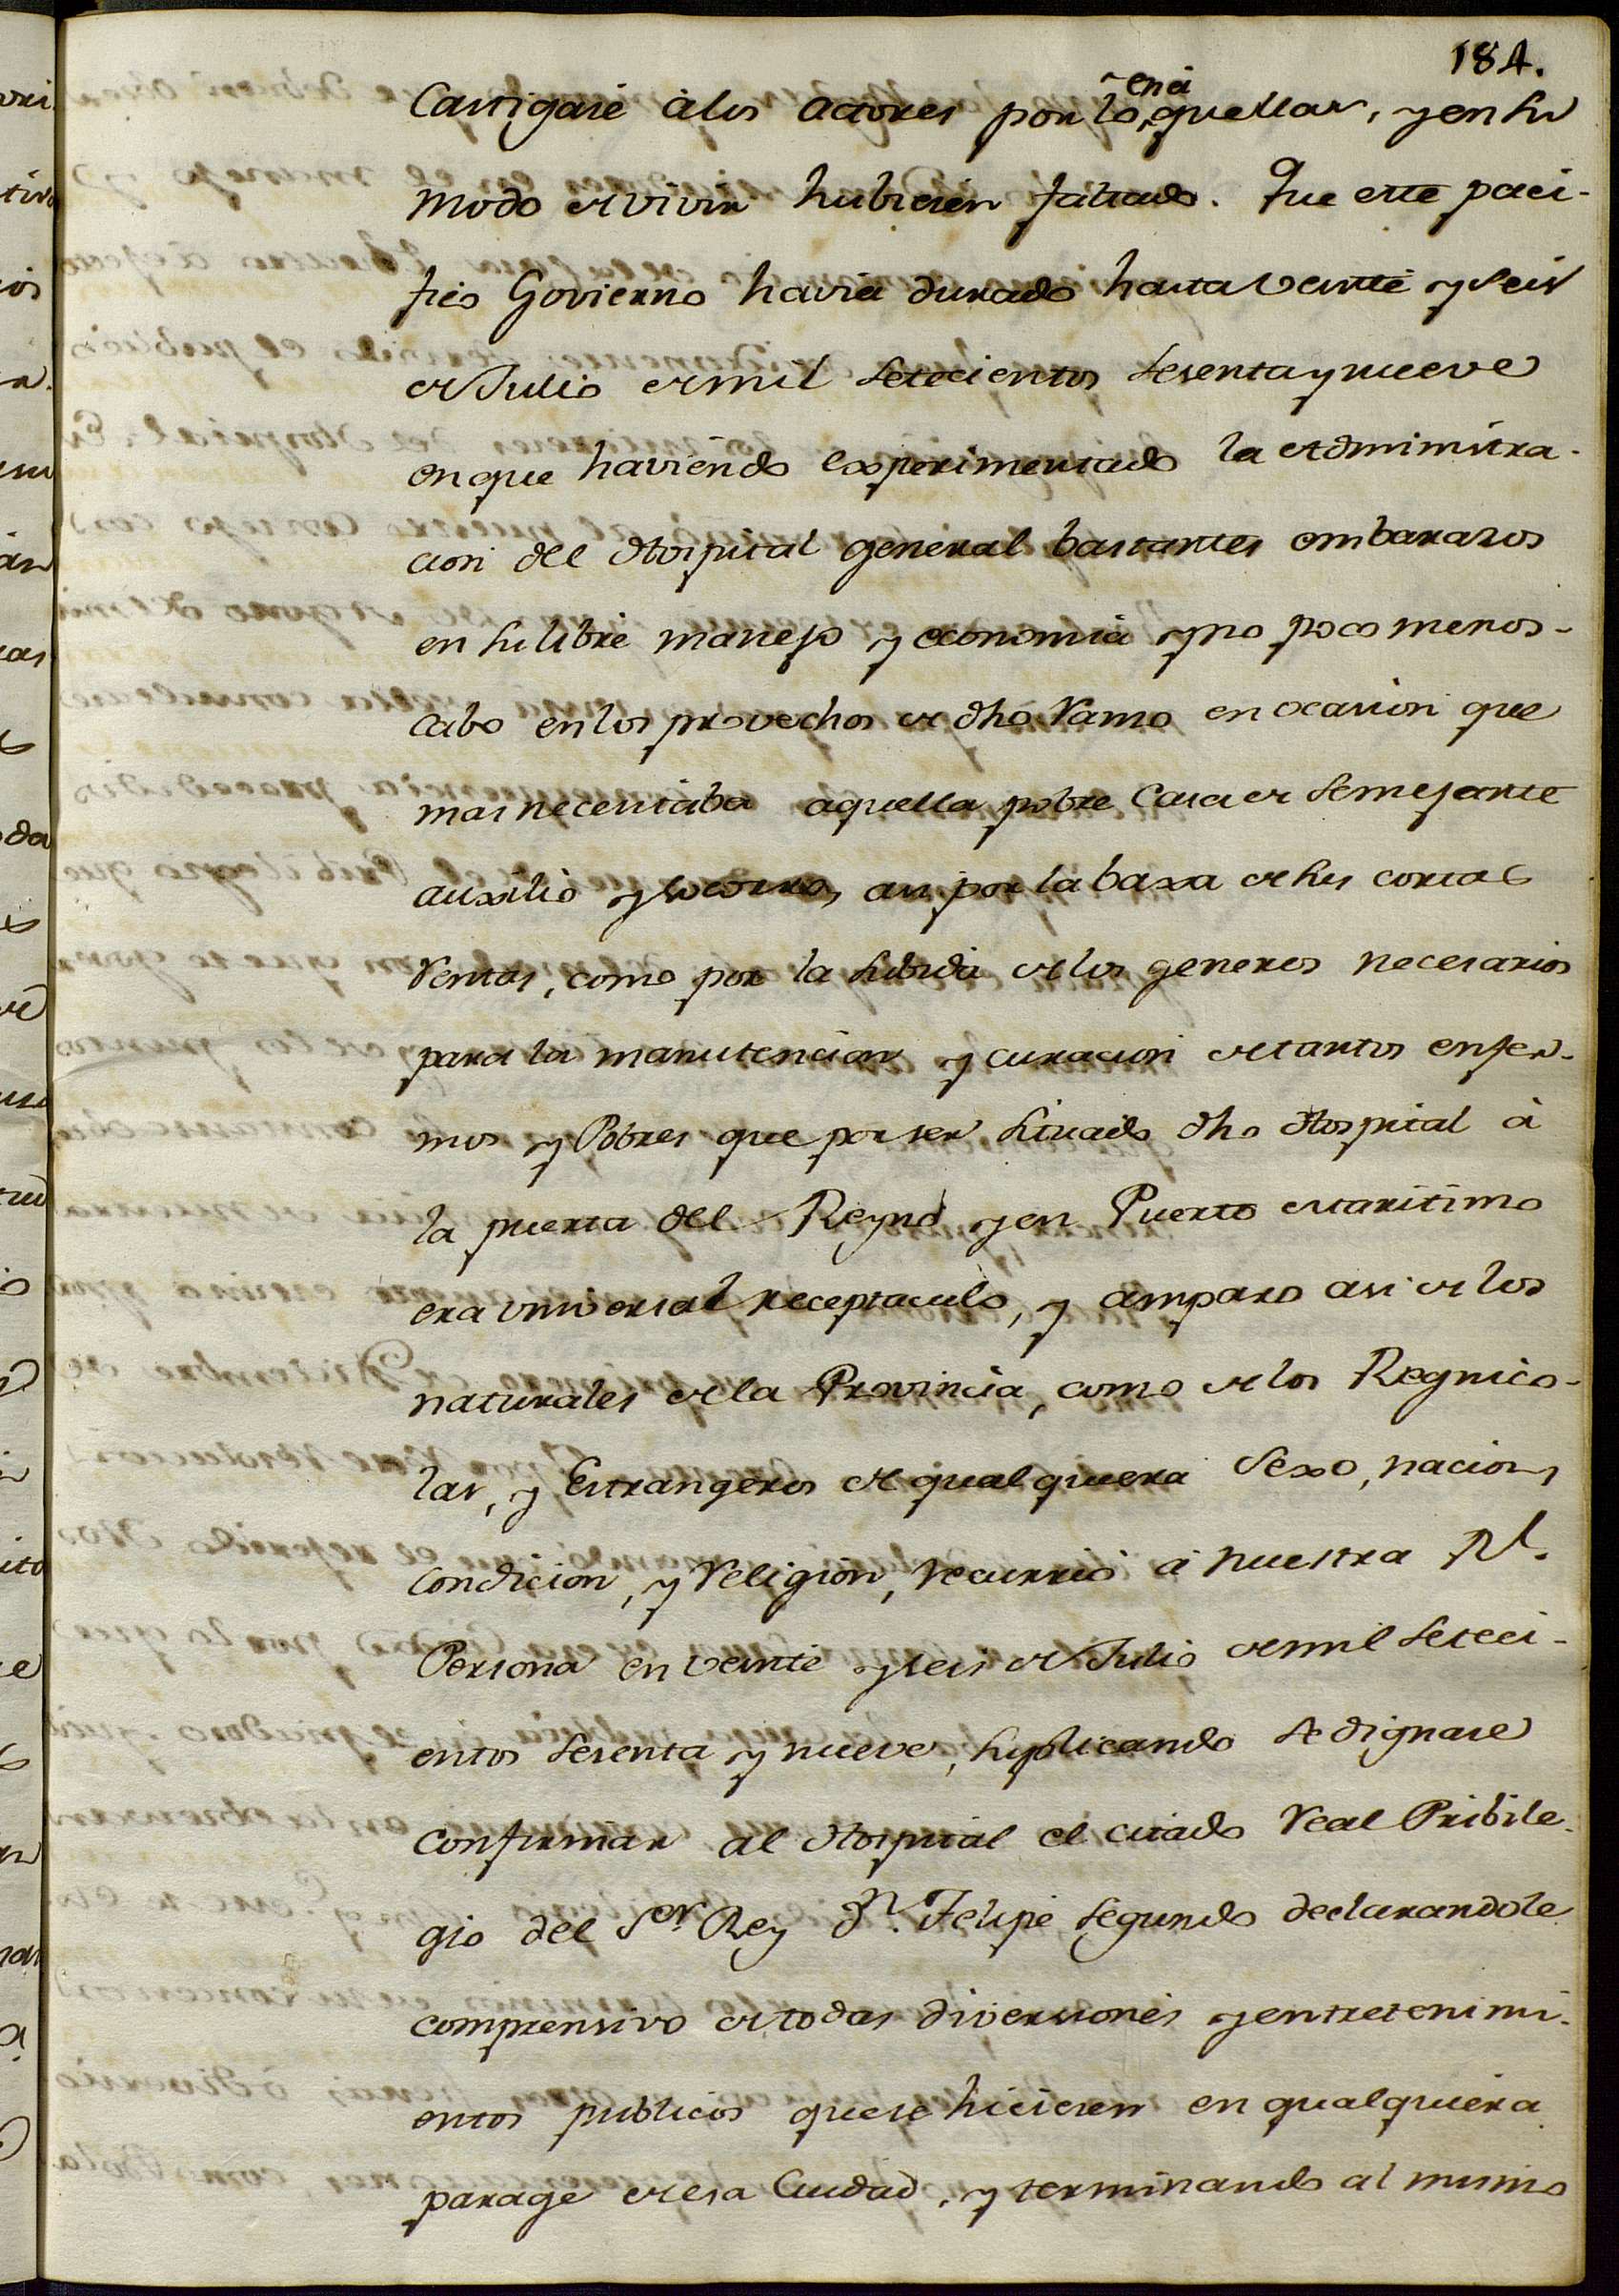 184.
Castigase à los Actores por lo que en aquellas, y en su
modo de vivir hubiesen faltado. Que este paci-
fico Govierno havia durado hasta veinte y seis
de Julio de mil setecientos sesenta y nueve
en que haviendo experimentado la Administra-
cion del Hospital general bastantes embarazos
en su libre manejo y economia y no poco menos-
cabo en los provechos de dho Ramo en ocasion que
mas necesitaba aquella pobre Casa de semejante
auxilio y socorro, asi por la baxa de sus cortas
Rentas, como por la subida de los generos necesarios
para la manutencion y curacion de tantos enfer-
mos y Pobres que por ser situado dho Hospital à
la puerta del Reyno y en Puerto Maritimo
era universal receptaculo, y amparo asi de los
naturales de la Provincia, como de los Regnico-
las, y Estrangeros de qualquiera Sexo, nacion,
condicion, y Religion, recurriò à nuestra Rl.
Persona en veinte y seis de Julio de mil seteci-
entos sesenta y nueve, suplicando se dignase
confirmar al Hospital el citado Real Pribile-
gio del Sor. Rey Dn. Felipe segundo declarandole
comprensivo de todas diversiones y entretenimi-
entos publicos que se hiciesen en qualquiera
parage de esa Ciudad, y terminando al mismo